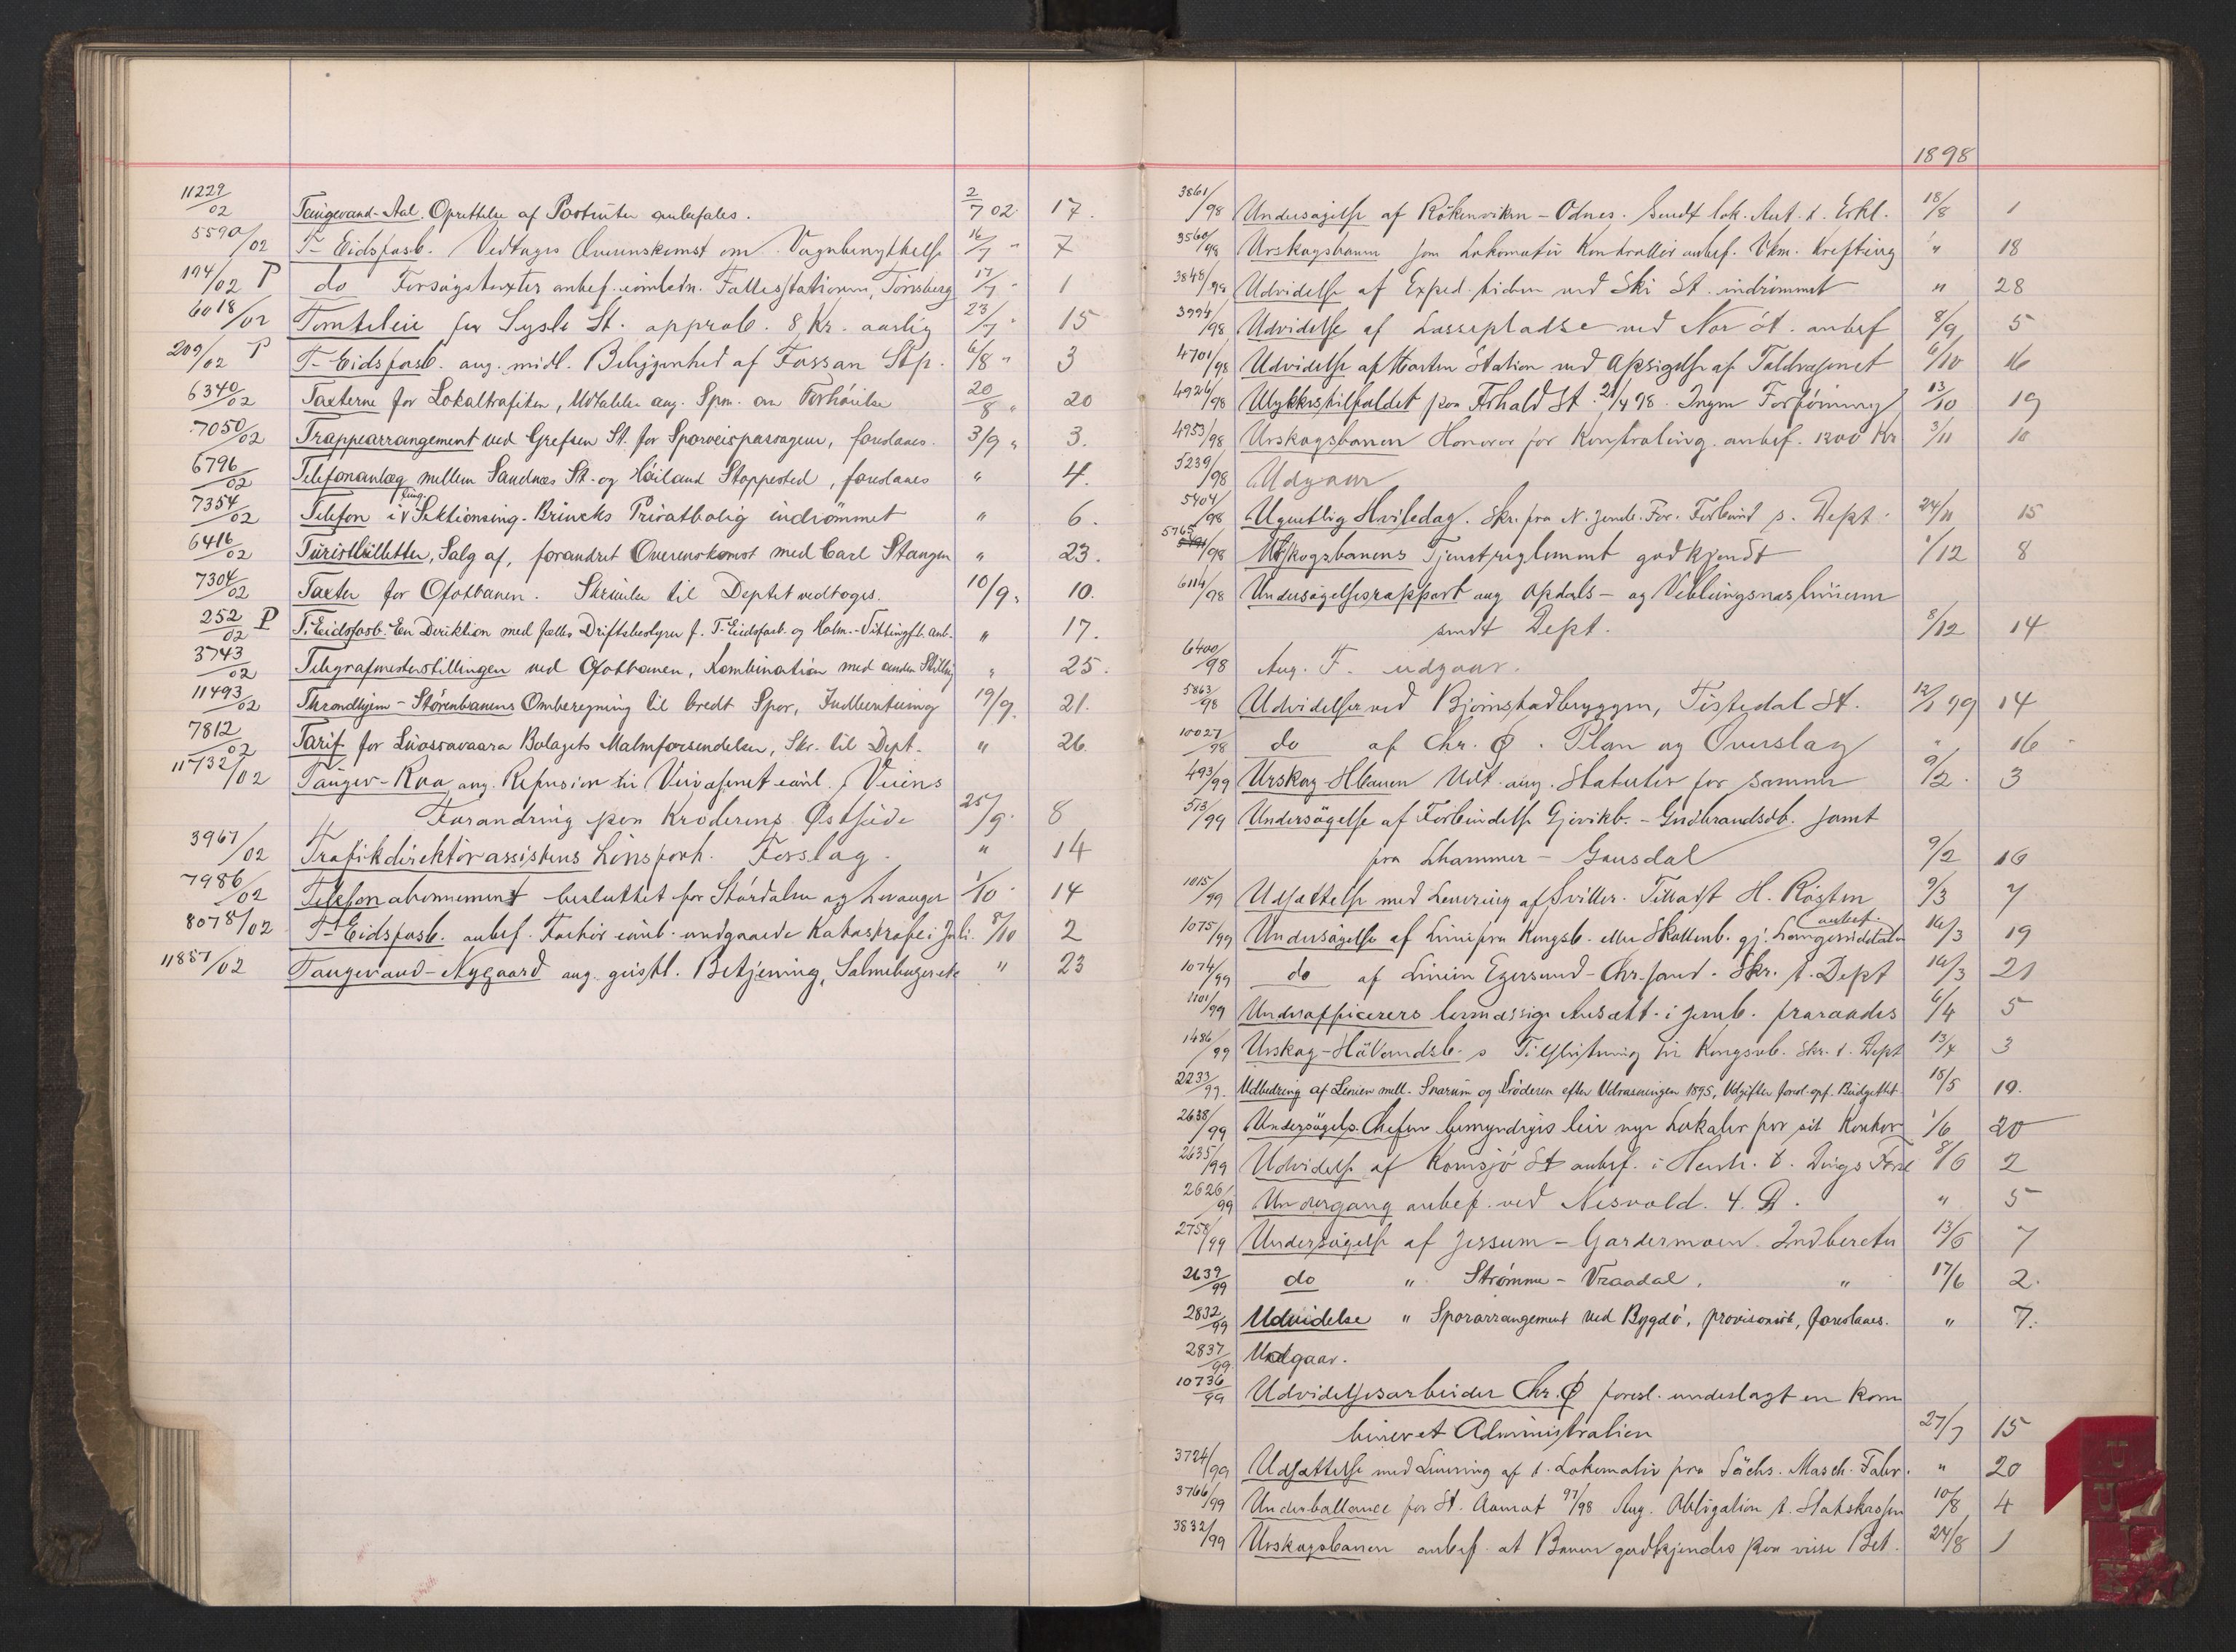 11229/02 Taugevand-Aal. Oprettelse af Postrute anbefales. 2/7 02. 17.
5590/02 T-Eidsfosb. Vedtages Overenskomst om Vognbenyttelse 16/7 " 7
194/02 P do Forsøgstaxter anbef. Fællesstationen, Tønsberg 17/7 " 1
6018/02 Tomteleie for Sysle St. approb. 8 Kr. aarlig 23/7 " 15
209/02 P T-Eidsfosb. ang. midl. Betjening af Fossan Stp. 6/8 " 3
6340/02 Taxterne for Lokaltrafiken, Udtalelse ang. Spm. om Forhøielse 20/8 " 20
7050/02 Trappearrangement ved Grefsen St. for Sporveispassagerer, foreslaaes. 3/9 " 3.
6796/02 Telefonanlæg mellem Sandnes St. og Høiland Stoppested, foreslaaes " 4.
7354/02 Telefon i Sektionsing. Brincks Privatbolig indrømmet " 6.
6416/02 Turistbilletter, Salg af, forandret Overenskomst med Carl Stangen " 23.
7304/02 Taxter for Ofotbanen. Skrivelse til Deptet vedtoges. 10/9 " 10.
252/02 P T. Eidsfosb. En Direktion med fælles Driftsbestyrer f. T-Eidsfosb. og Holm.-Vittingfb. anb. " 17.
3743/02 Telegrafmesterstillingen ved Ofotbanen, Kombination med anden Stilling " 25.
11493/02 Throndhjem-Størenbanens Omberegning til bredt Spor, Indberetning 19/9. 21.
7812/02 Tarif for Luossavaara Bolagets Malmforsendelser, Skr. til Dept. " 26
11732/02 Taugev-Roa ang. Refusion til Veivæsenet f. Veiens
Forandring paa Krøderens Østside 25/9. 8
3967/02 Trafikdirektørassistens Lønsforh. Forslag. " 14
7986/02 Telefonabonnement besluttet for Stördalen og Levanger 1/10 14
8078/02 T-Eidsfosb. anbef. undgaaede Katastrofe i Juli. 8/10 2
11857/02 Taugevand-Nygaard ang. geistl. Betjening, Salmebøger etc " 23
1898
3861/98 Undersøgelse af Røkenviken-Odnes. Sendt lok. Aut. t. Erkl. 18/8 1
3560/98 Urskogsbanen som Lokomotiv Kontrollør anbef. Vkm. Krefting " 18
3848/98 Udvidelse af Exped. tiden ved Ski St. indrømmet " 28
3994/98 Udvidelse af Lassepladse ved Nor St. anbef 8/9 5
4701/98 Udvidelse af Horten Station ved Afsigelse af Toldvæsenet 6/10 16
4926/98 Ulykkestilfældet paa Frhald St. 21/4 98. Ingen Forføining 13/10 19
4953/98 Urskogsbanen Honorar for Kontroling. anbef. 1200 Kr 3/11 10
5239/98 Udgaar
5404/98 Ugentlig Hviledag. Skr. fra N. Jernb. For. Forbund s. Dept. 24/11 15
5765/98 Urskogsbanens Tjenstreglement godkjendt 1/12 8
6114/98 Undersøgelsesrapport ang Opdals- og Veblungsnæslinierne
sendt Dept. 8/12 14
6400/98 Aug. F. udgaar.
5863/98 Udvidelser ved Bjørnstadbryggen, Tistedal St. 12/1 99 14
10027/98 do af Chr. Ø. Plan og Overslag " 16
493/99 Urskog-Hbanen Udt. ang. Statuter for samme 9/2. 3
513/99 Undersøgelse af Forbindelse Gjøvikb.-Gudbrandsdb. samt
fra Lhammer-Gausdal 9/2 16
1015/99 Udsættelse med Levering af Sviller. Tilstaaet H. Røsten 9/3 7
1075/99 Undersøgelse af Linie fra Kongsb. eller Skollenb. gj. anbef. 16/3 19
1074/99 do af Linien Egersund-Chr.sand. Skr. t. Dept 16/3 21
1101/99 Underofficerers Ansætt. i Jernb. fraraades 6/4 5
1486/99 Urskog-Hølandsb.s Tilslutning til Kongsvb. Skr. t. Dept 13/4 3
2233/99. Udbedring af Linien mell. Snarum og Krøderen efter Udrasningen 1895, Udgifter foresl. opf. Budgettet 18/5 10.
2638/99 Undersøgels. Chefen bemyndiges leie nye Lokaler for sit Kontor 1/6 20
2635/99 Udvidelse af Kornsjø St anbef. i Henh. t. Dings Forsl 8/6 2
2626/99 Undergang anbef. ved Nesvold. 4. D. " 5
2758/99 Undersøgelse af Jessum-Gardermoen. Indberetn 13/6 7
2639/99 do " Strømme-Vraadal. " 17/6 2.
2832/99 Udvidelse " Sporarrangement ved Bygdø, provisorisk, foreslaaes. " 7.
2837/99. Udgaar.
10736/99 Udvidelsesarbeider Chr. Ø foresl. underlagt en kom
bineret Administration 27/7 15
3724/99 Udsættelse med Levering af 1. Lokomotiv fra Sächs. Masch. Fabr. " 20
3766/99 Underballance for St. Aamot 97/98 Ang. Obligation t. Statskassen 10/8 4
3832/99 Urskogsbanen anbef. at Banen godkjendes paa visse Bet. 24/8 1